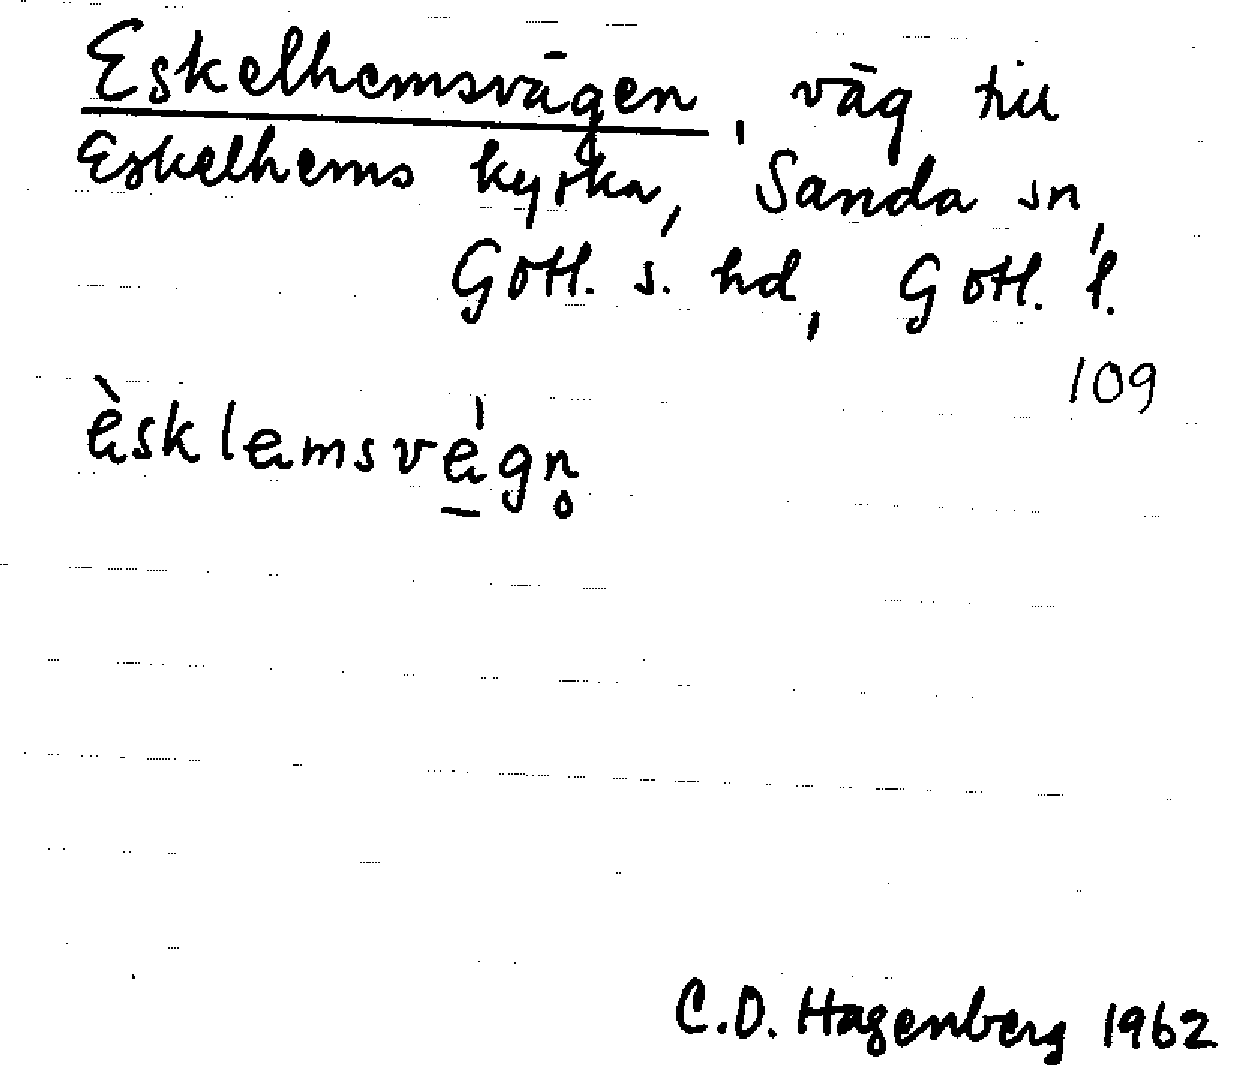 Eskelhemsvägen, väg till
Eskelhems kyrka, Sanda sn,
Gotl. s. hd, Gotl. l.
109
èsklemsvégn̥
C.D. Hagenberg 1962